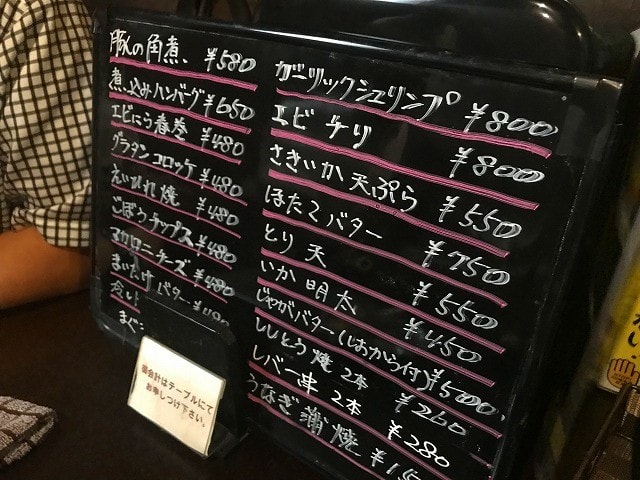 豚の角煮 ¥580
煮込みハンバーグ ¥650
エビにら春巻 ¥480
グラタンコロッケ ¥480
えいひれ焼 ¥480
ごぼうチップス ¥480
マカロニチーズ ¥480
まいたけバター ¥480
冷し
まぐ
ガーリックシュリンプ ¥800
エビチリ ¥800
さきいか天ぷら ¥550
ほたてバター ¥750
とり天 ¥550
いか明太 ¥450
じゃがバター(しおから付) ¥500
ししとう焼 2本 ¥260
レバー串 2本 ¥280
うなぎ蒲焼 ¥15
御会計はテーブルにて
お申しつけ下さい。